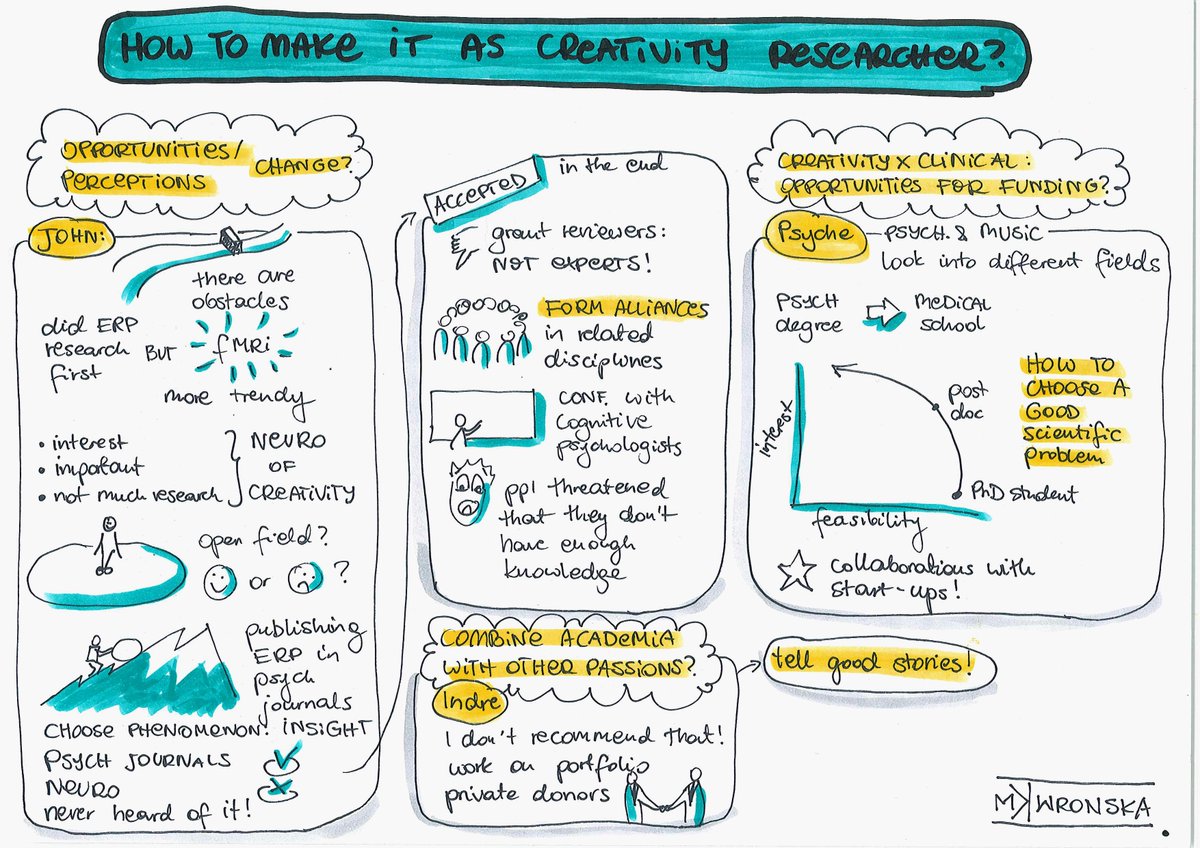 HOW TO MAKE IT AS CREATIVITY RESEARCHER?
OPPORTUNITIES/
PERCEPTIONS
CHANGE?
JOHN:
there are
obstacles
did ERP
research
first
BUT
fMRi
more trendy
• interest
• important
• not much research
NEURO
OF
CREATIVITY
open field?
or
?
publishing
ERP in
psych
journals
CHOOSE PHENOMENON: INSIGHT
PSYCH JOURNALS
NEURO
never heard of it!
ACCEPTED
in the end
grant reviewers:
NOT EXPERTS!
FORM ALLIANCES
in related
disciplines
CONF. with
Cognitive
psychologists
ppl threatened
that they don't
have enough
knowledge
COMBINE ACADEMIA
WITH OTHER PASSIONS?
Indre
I don't recommend that!
work on portfolio
private donors
CREATIVITY X CLINICAL:
OPPORTUNITIES FOR FUNDING?
Psyche
PSYCH. & MUSIC
look into different fields
PSYCH
degree
MEDICAL
school
interest
feasibility
post
doc
PhD student
HOW TO
CHOOSE A
GOOD
scientific
problem
collaborations with
start-ups!
tell good stories!
MK WRONSKA